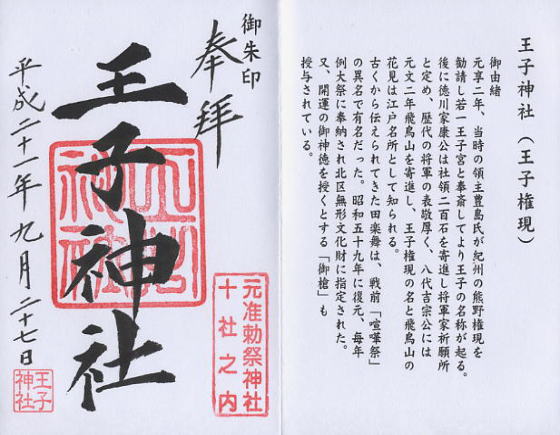 王子神社（王子権現）
御由緒
元亨二年、当時の領主豊島氏が紀州の熊野権現を
勧請し若一王子宮と奉斎してより王子の名称が起る。
後に徳川家康公は社領二百石を寄進し将軍家祈願所
と定め、歴代の将軍の表敬厚く、八代吉宗公には
元文二年飛鳥山を寄進し、王子権現の名と飛鳥山の
花見は江戸名所として知られる。
古くから伝えられてきた田楽舞は、戦前「喧嘩祭」
の異名で有名だった。昭和五十九年に復元、毎年
例大祭に奉納され北区無形文化財に指定された。
又、開運の御神徳を授くとする「御槍」も
授与されている。
御朱印
奉拝
王子神社
元准勅祭神社
十社之内
平成二十一年九月二十七日
王子
神社